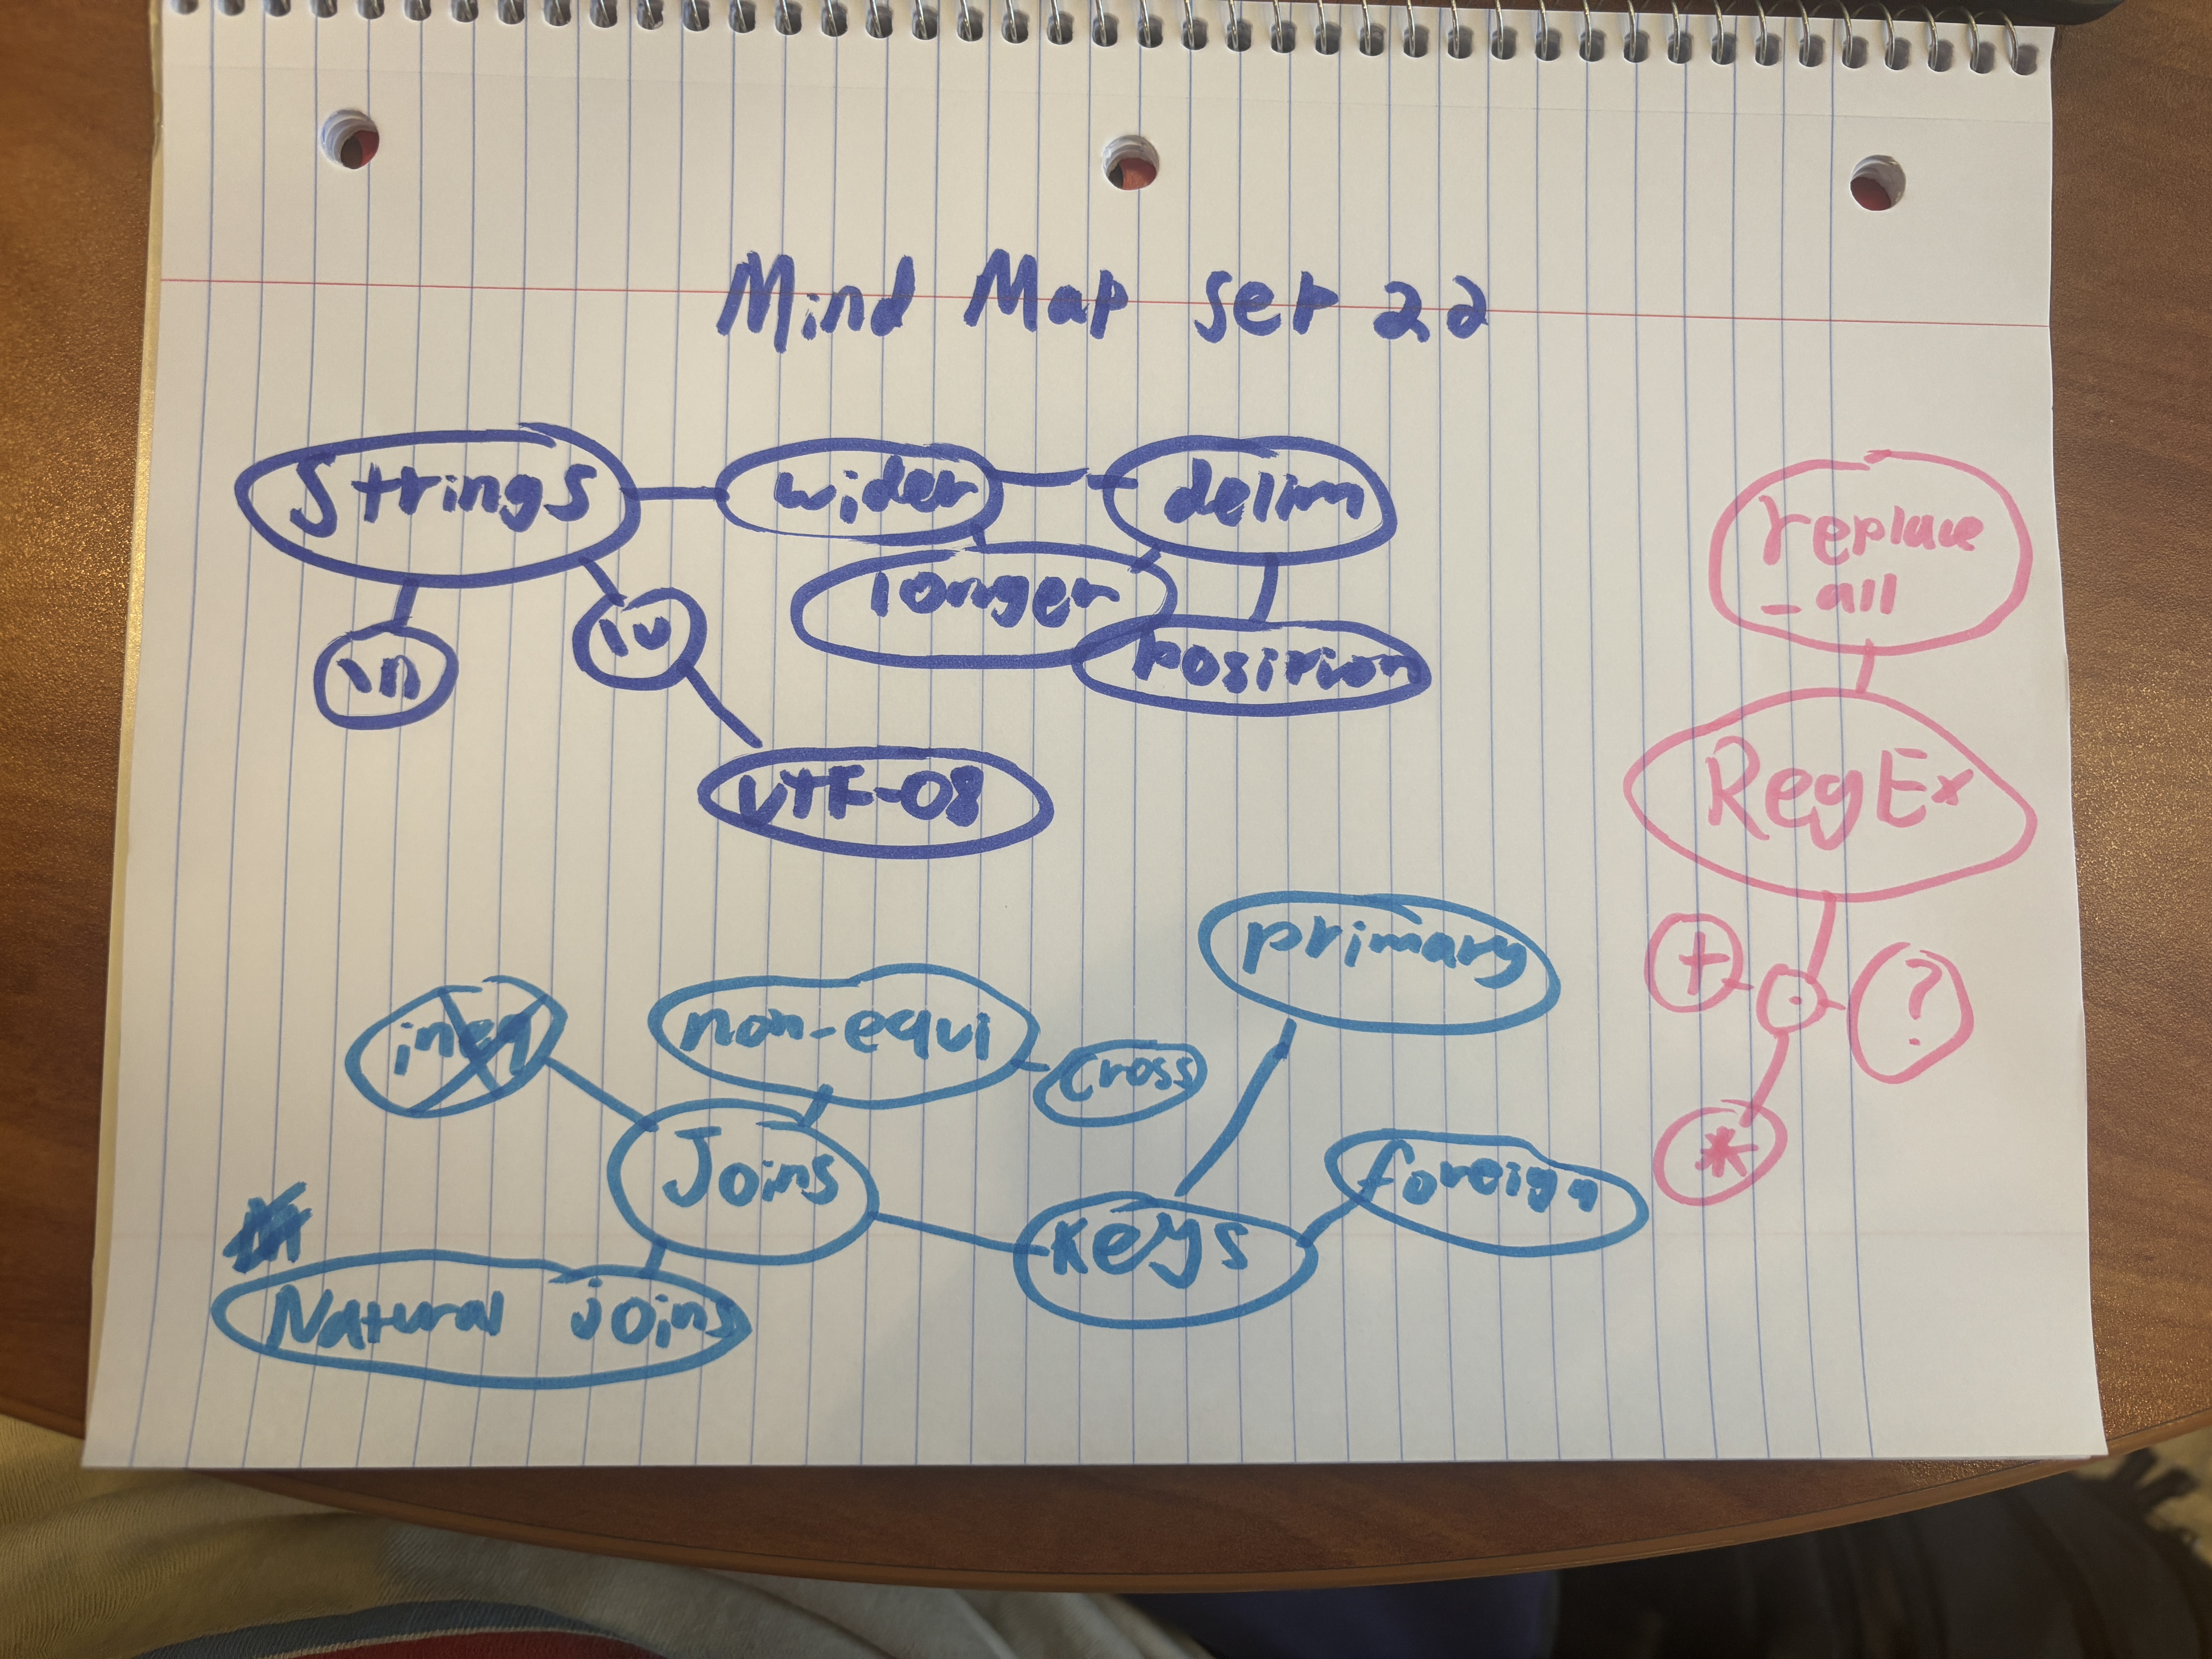 Mind Map Set 2d
Strings
wider
delim
\n
longer
position
\u
UTF-08
replace
_all
RegEx
+
.
?
*
non-equi
cross
primary
Joins
Keys
foreign
Natural joins